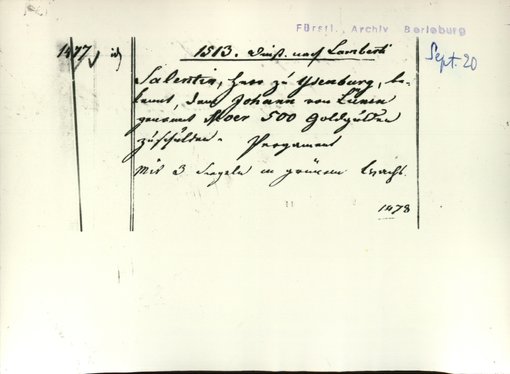 Fürstl. Archiv Berleburg
Sept. 20
1477
1513. Dinst. nach Lamberti
Salentin, Herr zu Ysenburg, be-
kennt, dem Johann von Lünen
genannt Moer 500 Goldgülden
zu schulden. Pergament
Mit 3 Siegeln in grünem Wachs.
1478